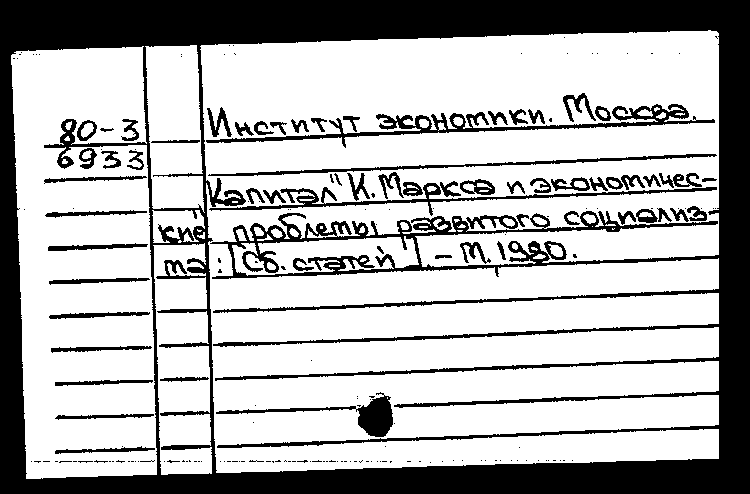 80-3
6933
Институт экономики. Москва.
Капитал" К. Маркса и экономичес-
"кие проблемы развитого социализ-
ма: [Сб. статей]. - М. 1980.